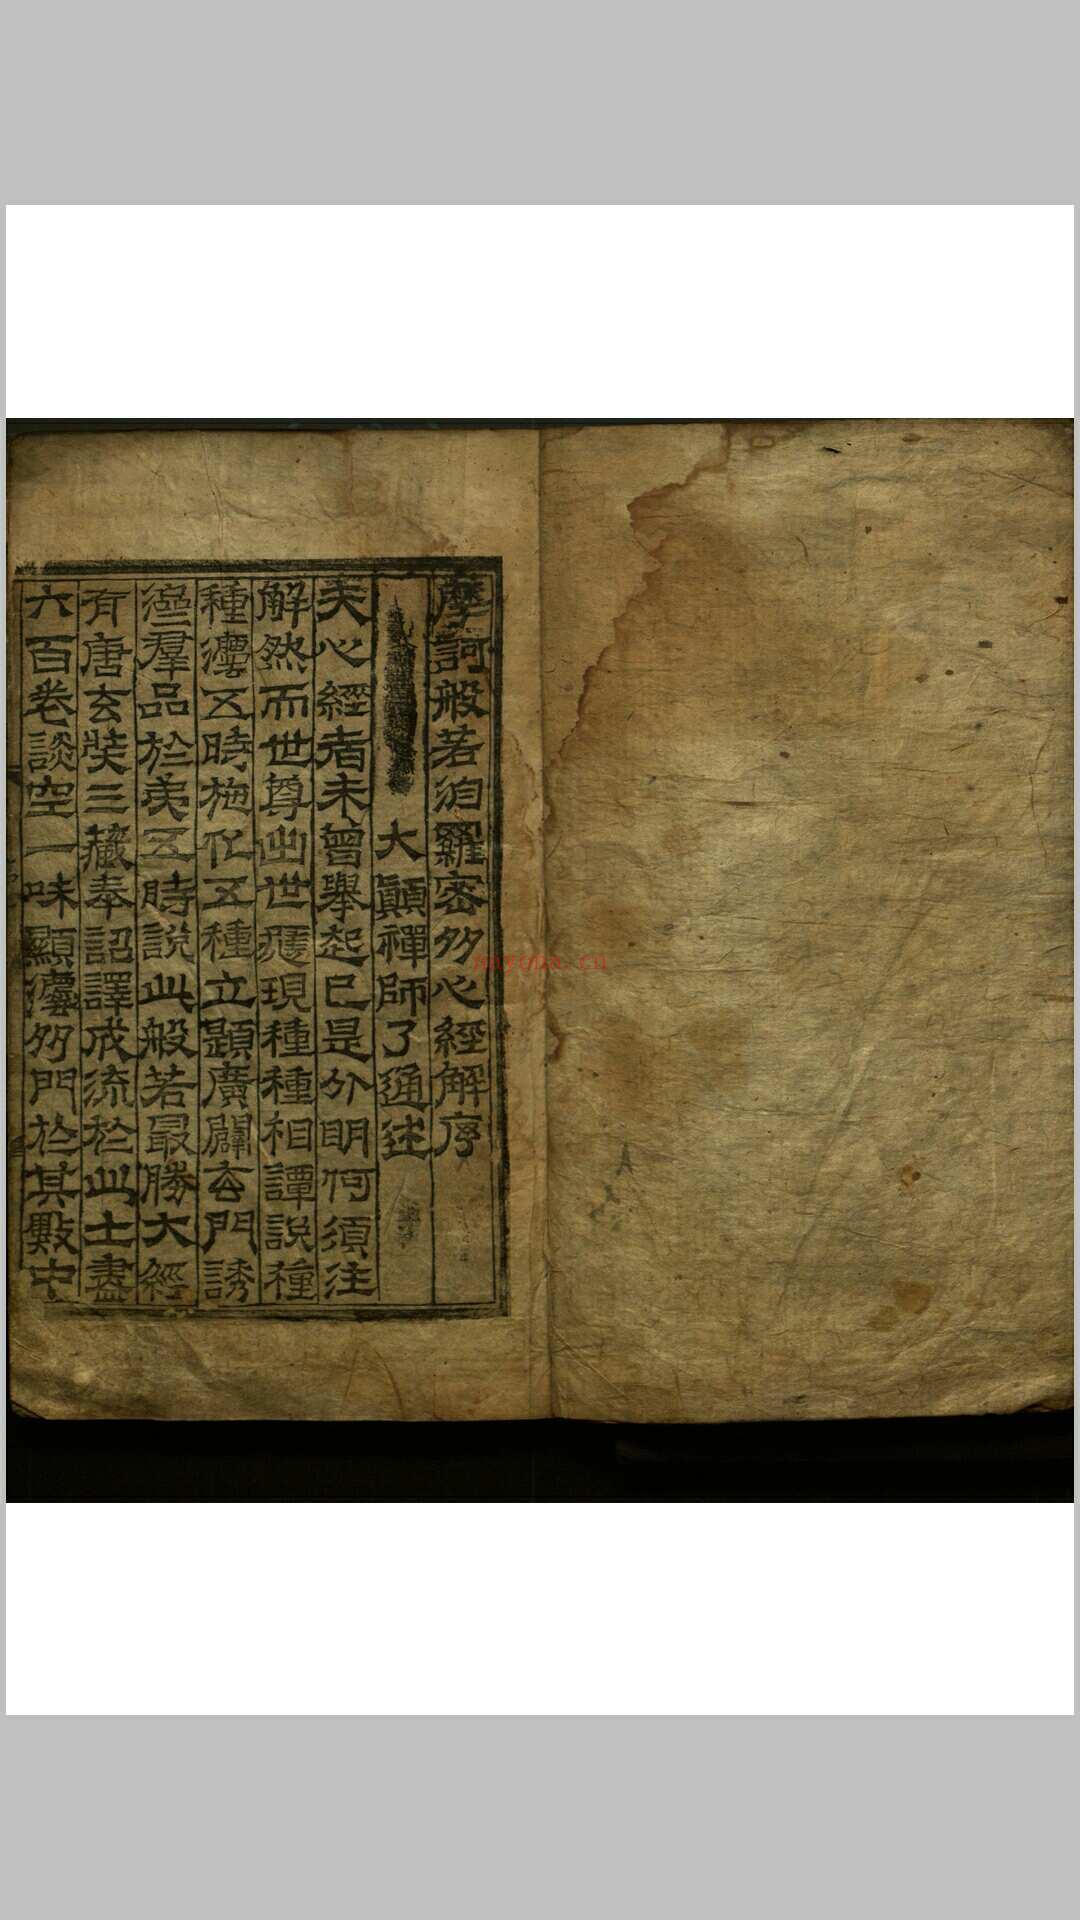 摩訶般若波羅密多心經解序
大顚禪師了通述
夫心經者未曾擧起已是分明何須注
解然而世尊出世應現種種相譚說種
種濃五時施化五種立題廣闢玄門誘
羣品於第五時說此般若最勝大經
有唐玄奘三藏奉詔譯成流於此土盡
六百卷談空一味顯妙門於其點中
nnyona.cn